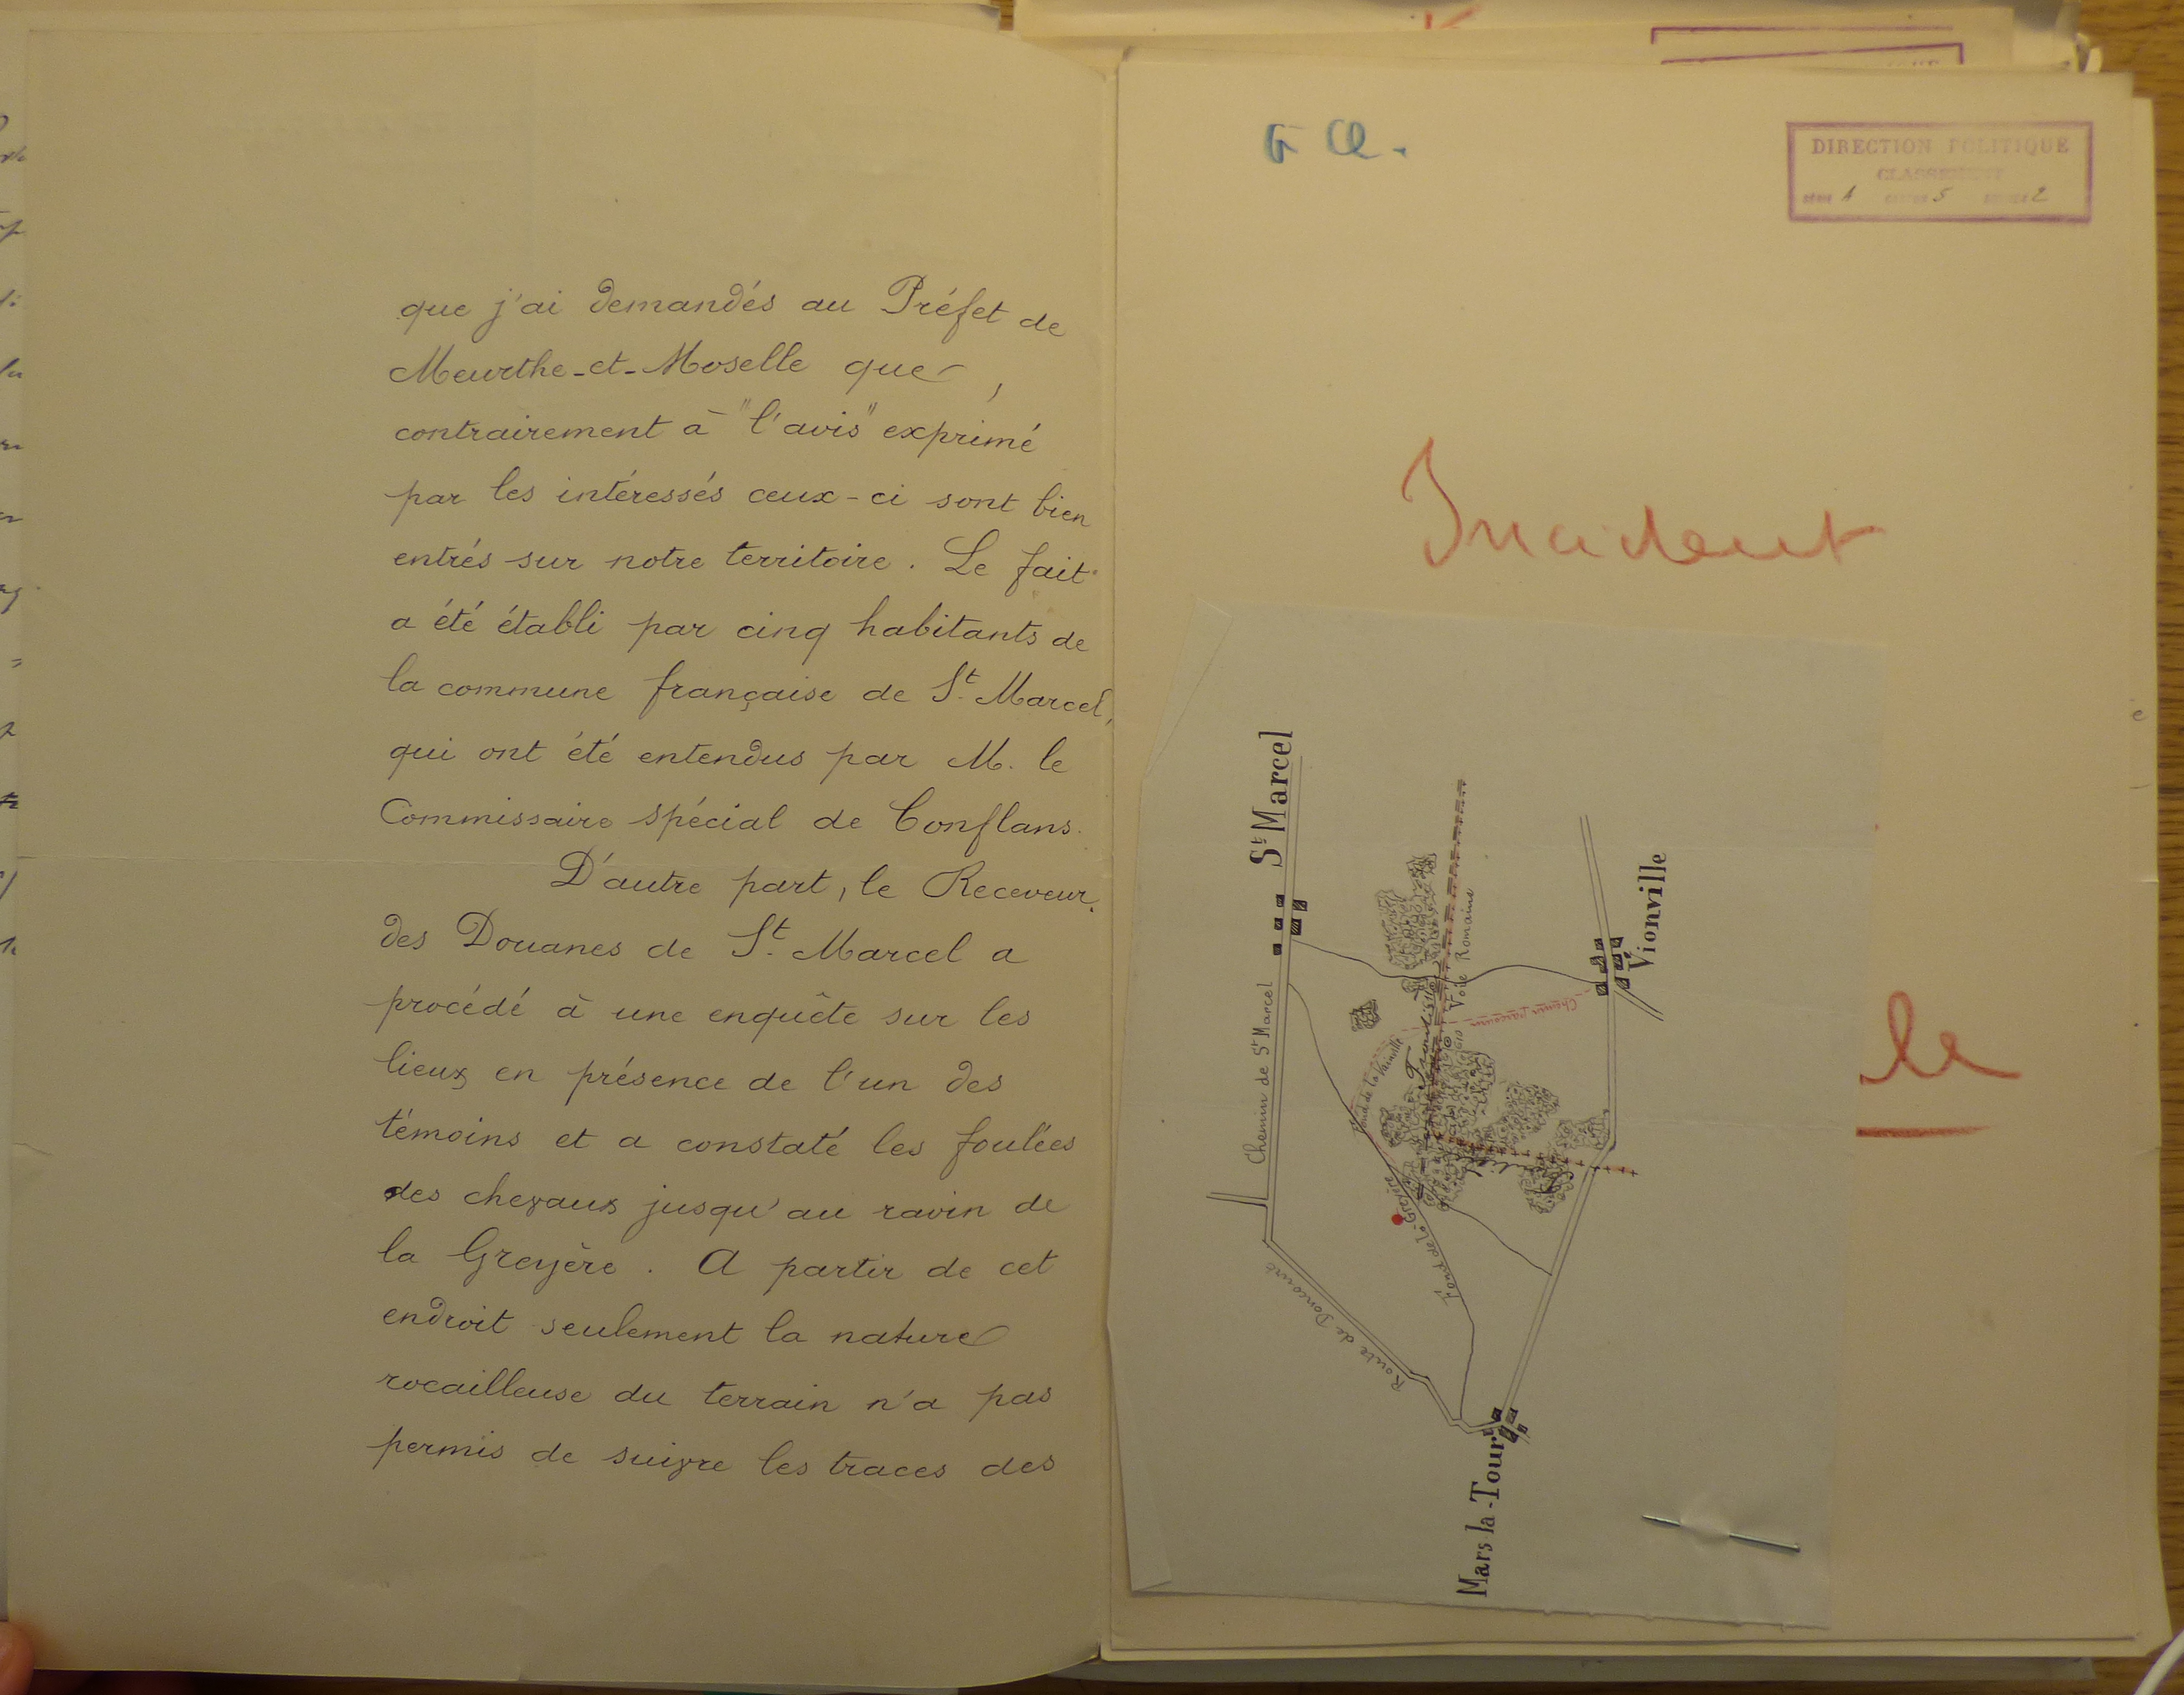 que j'ai demandés au Préfet de
Meurthe-et-Moselle que,
contrairement à "l'avis" exprimé
par les intéressés ceux-ci sont bien
entrés sur notre territoire. Le fait
a été établi par cinq habitants de
la commune française de St. Marcel,
qui ont été entendus par M. le
Commissaire spécial de Conflans.
D'autre part, le Receveur
des Douanes de St. Marcel a
procédé à une enquête sur les
lieux en présence de l'un des
témoins et a constaté les foulées
des chevaux jusqu'au ravin de
la Greyère. A partir de cet
endroit seulement la nature
rocailleuse du terrain n'a pas
permis de suivre les traces des
DIRECTION POLITIQUE
CLASSEMENT
A 5 2
Incident
le
St Marcel
Chemin de St Marcel
Voie Romaine
Vionville
Chemin parcouru
Fond de la Greyère
Route de Doncourt
Mars la-Tour